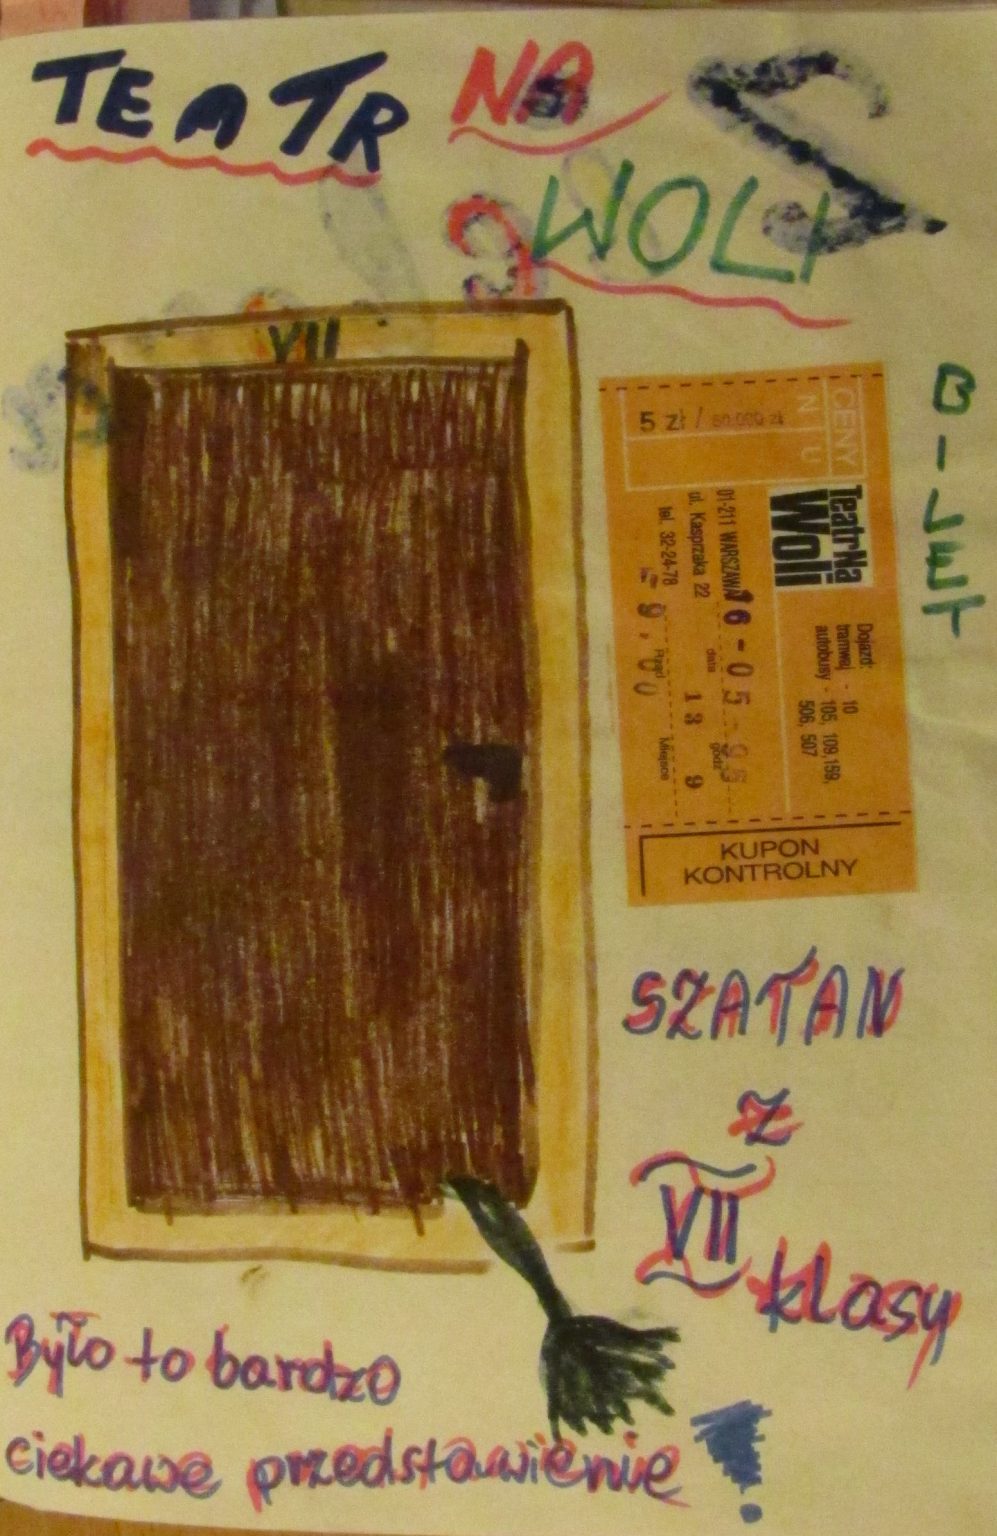 TEATR NA
WOLI
VII
BILET
CENY
5 zł / 50.000 zł
Teatr Na
Woli
01-211 WARSZAWA
ul. Kasprzaka 22
tel. 32-24-78
Dojazd:
tramwaj - 10
autobusy - 105, 109, 159,
506, 507
16-05-95
data
godz
13 9
9.00
Rząd
Miejsce
KUPON
KONTROLNY
SZATAN
z
VII
klasy
Było to bardzo
ciekawe przedstawienie!